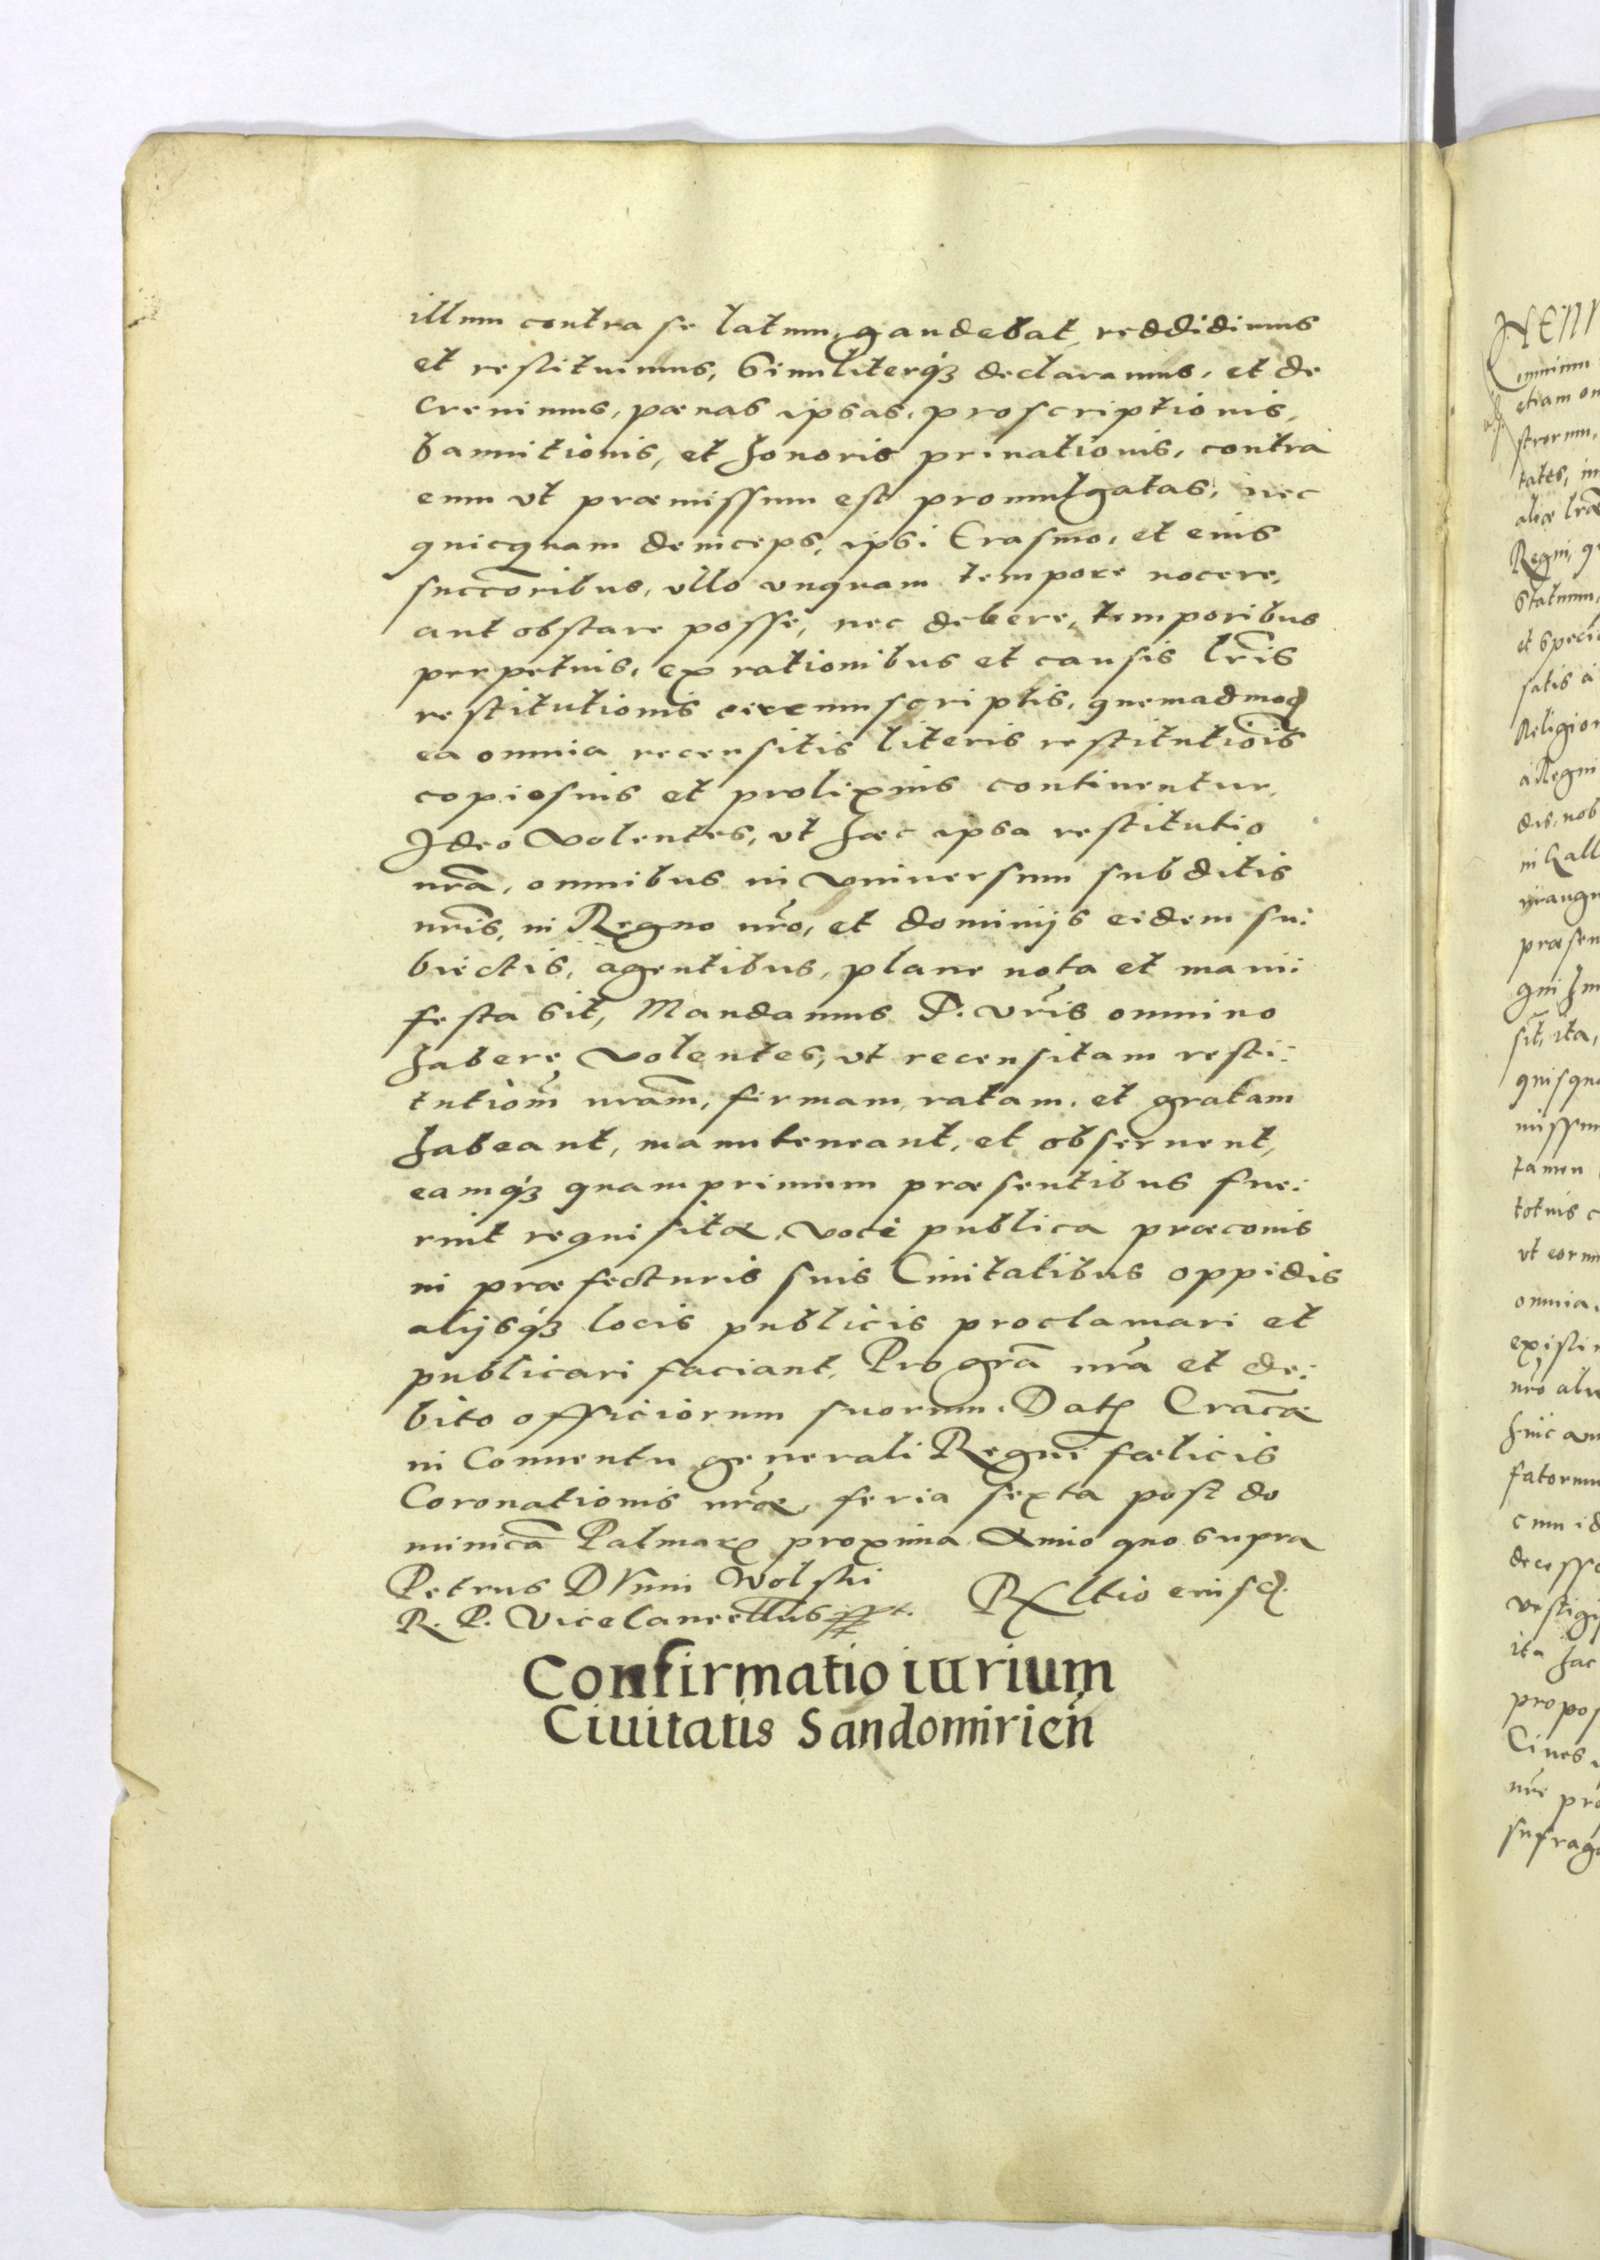 illum contra se latum, gaudebat, reddidimus
et restituimus, Similiterq́ꝫ declaramus, et de
creuimus, pœnas ipsas, proscriptionis,
bannitionis, et honoris priuationis, contra
eum vt præmissum est promulgatas, nec
quicquam deinceps, ipsi Erasmo, et eius
succõribus, vllo vnquam tempore nocere,
aut obstare posse, nec debere, temporibus
perpetuis, ex rationibus et causis lr̃is
restitutionis circumscriptis, quemadmod
ea omnia recensitis literis restitutiõis
copiosius et prolixius continentur,
Ideo volentes, vt hæc ipsa restitutio
nr̃a, omnibus in vniuersum subditis
nr̃is, in Regno nr̃o, et dominijs eidem su:
biectis, agentibus, plane nota et mani:
festa sit, Mandamus D. vr̃is omnino
habere volentes, vt recensitam resti:
tutiom̃ nr̃am, firmam, ratam, et gratam
habeant, manuteneant, et obseruent,
eamq́ꝫ quamprimum præsentibus fue:
rint requisitæ, voce publica præconis
in præfecturis suis Ciuitatibus oppidis
alijsq́ꝫ locis publicis proclamari et
publicari faciant, Pro gr̃a nr̃a et de:
bito officiorum suorum. Datꝭ Crac̃æ
in Conuentu generali Regni fœlicis
Coronationis nr̃æ, feria sexta post do
minicã Palmarꝝ proxima Anno quo supra
Petrus Dunin Wolski
R. P. Vicecancellus ppt. Rltio eiusd
Confirmatio iurium
Ciuitatis Sandomirieñ
Regni, q
Statuum,
et speci
satis a
Religion
a Regni
dis, nob
in Gall
præsen
sit, ita,
quisqu
tamen
totius c
omnia,
existi
fatorum
cum id
propos
Ciues
nr̃e pro
sufrag